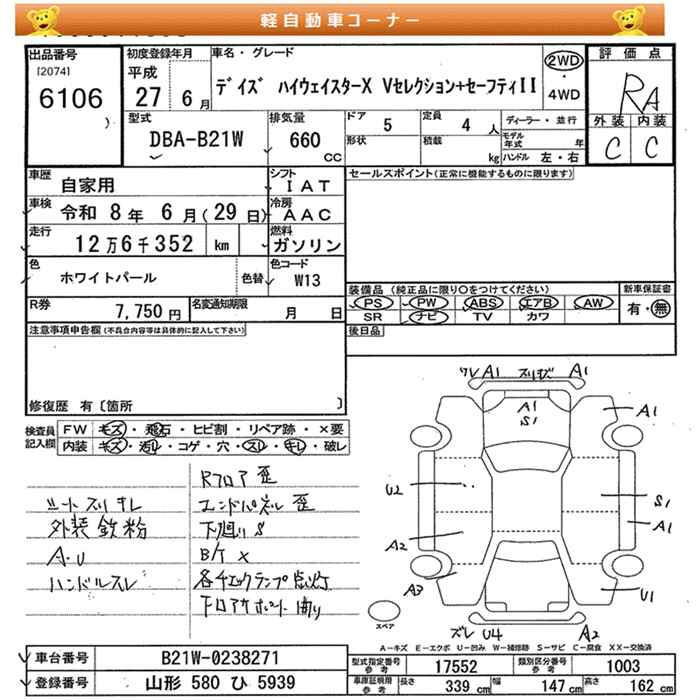 軽自動車コーナー
出品番号 初度登録年月 車名・グレード 2WD 評価点
[2074] 平成 デイズ ハイウェイスターX Vセレクション+セーフティII ・
6106 27 6月 4WD RA
) 型式 排気量 ドア 定員 ディーラー・並行 外装 内装
DBA-B21W 660 CC 5 4人 モデル年式 年 C C
形状 積載 kg ハンドル 左・右
車歴 自家用 シフト IAT セールスポイント(正常に機能するものに限ります)
車検 令和 8年 6月(29日) 冷房 AAC
走行 12万6千352 km 燃料 ガソリン
色 ホワイトパール 色替 色コード W13
装備品(純正品に限り○をつけてください) 新車保証書
R券 7,750円 名変通知期限 月 日 PS PW ABS エアB AW 有・無
SR ナビ TV カワ
注意事項申告欄(不具合内容等は具体的に記入して下さい) 後日品
修復歴 有〔箇所 〕
検査員記入欄 FW キズ・飛石・ヒビ割・リペア跡・×要
内装 キズ・汚れ・コゲ・穴・スレ・キレ・破レ
シートスリキレ
外装鉄粉
A.U
ハンドルスレ
Rフロア歪
エンドパネル歪
下廻りS
B/ケ X
各チェックランプ点灯
Fロアサポート曲り
ワレ A1 スリキズ A1
A1
S1
A1
U2
S1
A1
A2
A3
U1
ズレ U4 A2
スペア
A-キズ E-エクボ U-凹み W-補修跡 S-サビ C-腐食 XX-交換済
車台番号 B21W-0238271 型式指定番号 参考 17552 類別区分番号 参考 1003
登録番号 山形 580 ひ 5939 車庫証明用 参考 長さ 339cm 幅 147cm 高さ 162cm